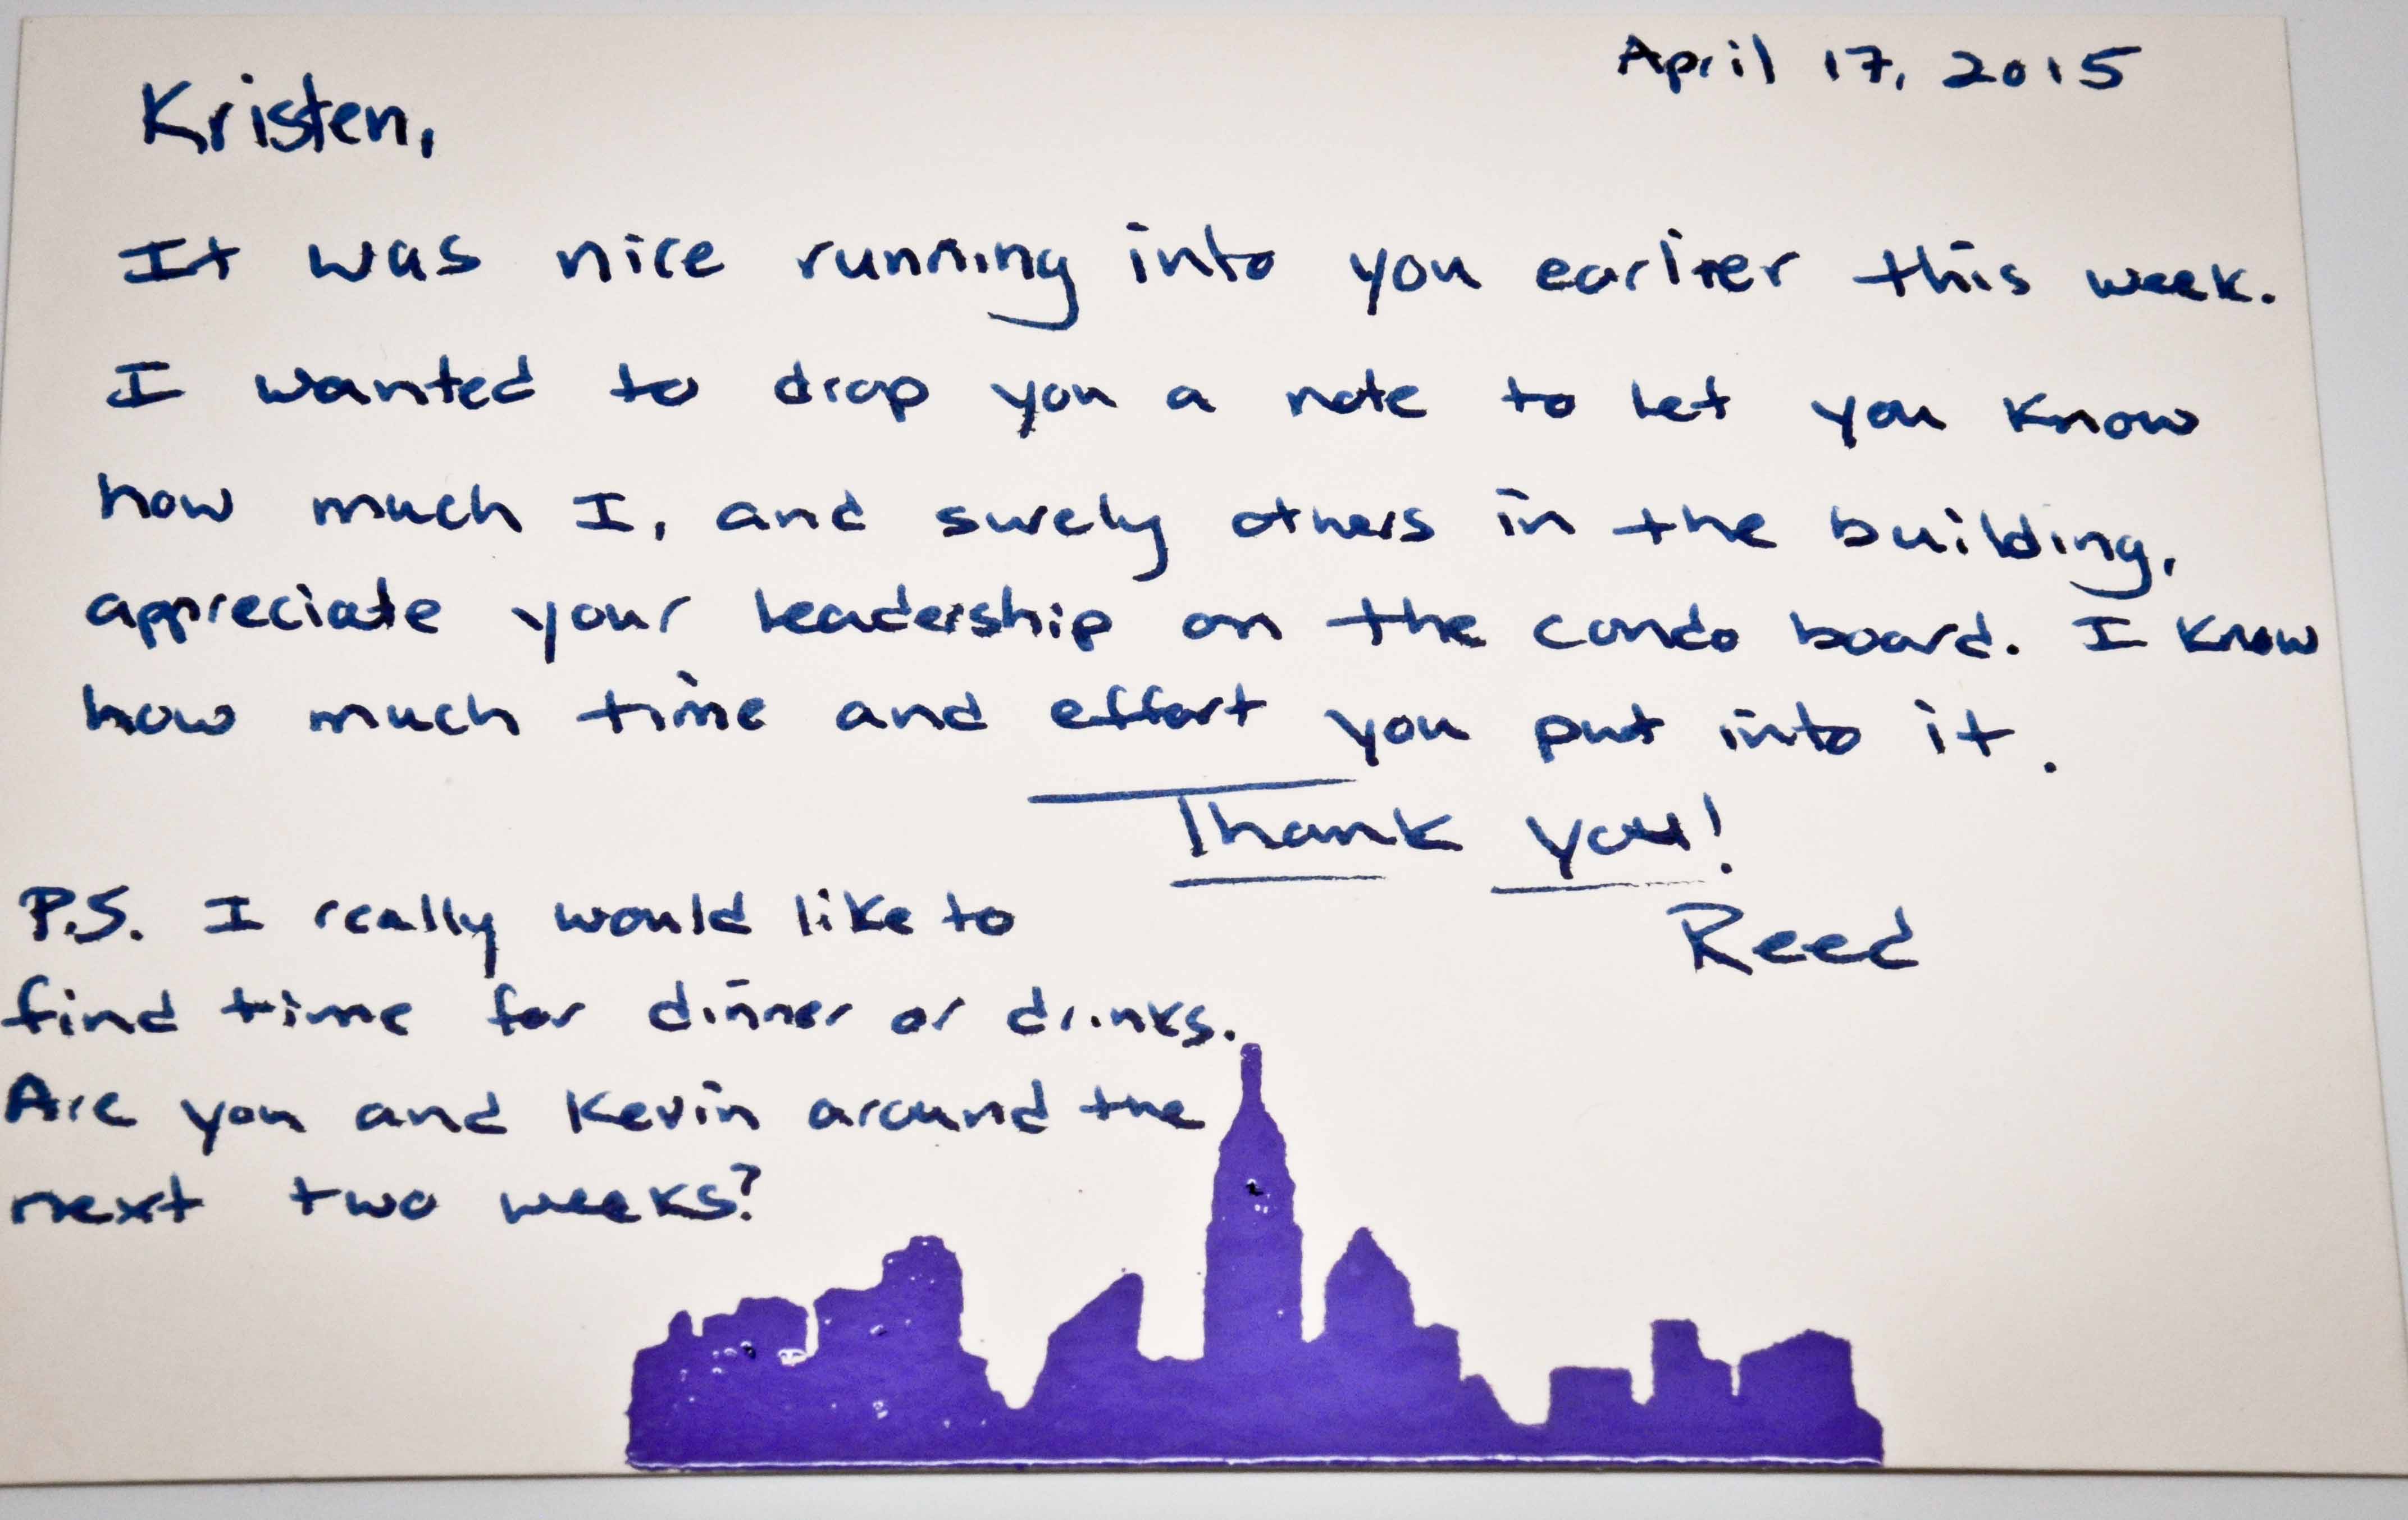 April 17, 2015
Kristen,
It was nice running into you earlier this week.
I wanted to drop you a note to let you know
how much I, and surely others in the building,
appreciate your leadership on the condo board. I know
how much time and effort you put into it.
Thank you!
Reed
P.S. I really would like to
find time for dinner or drinks.
Are you and Kevin around the
next two weeks?